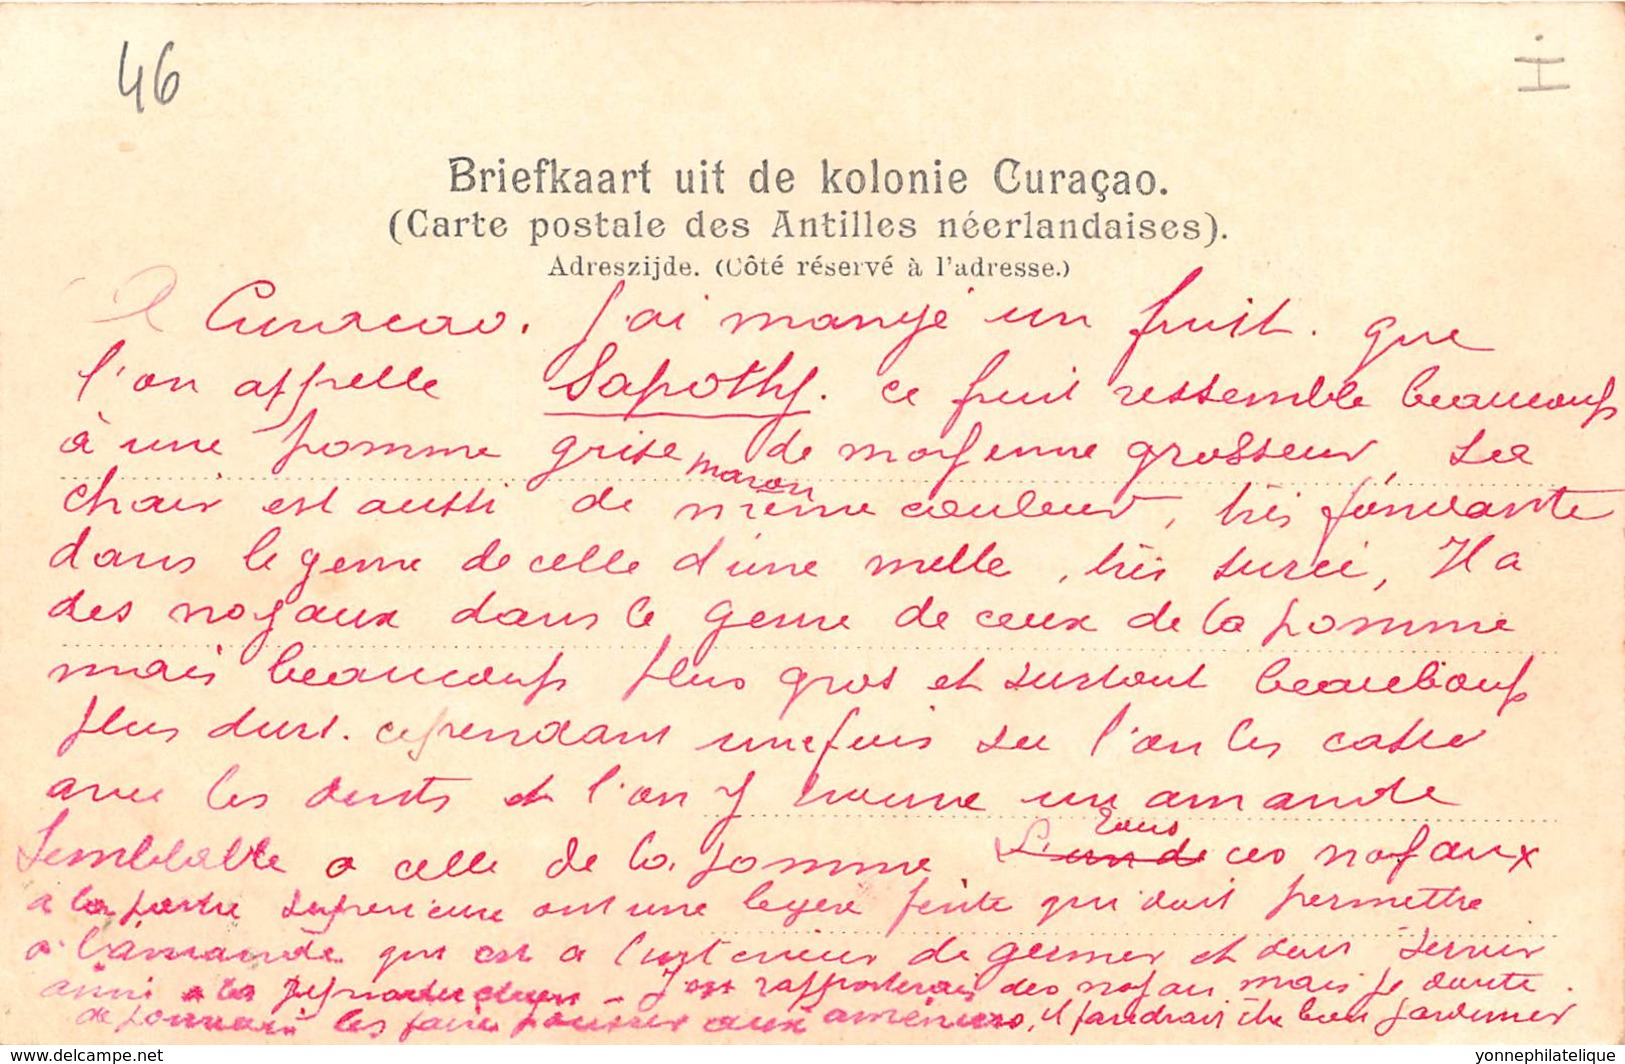 46
Briefkaart uit de kolonie Curaçao.
(Carte postale des Antilles néerlandaises).
Adreszijde. (Côté réservé à l'adresse.)
A Curacao. J'ai mangé un fruit. que
l'on appelle Sapothy. ce fruit ressemble beaucoup
à une pomme grise de moyenne grosseur, sa
maron
chair est aussi de même couleur, très fondante
dans le genre de celle d'une melle, très surée, Il a
des noyaux dans le genre de ceux de la pomme
mais beaucoup plus gros et surtout beaucoup
plus durs. cependant une fois sec l'on les casse
avec les dents et l'on y trouve un amande
tous
semblable a celle de la pomme ces noyaux
a la partie superieure ont une legere fente qui doit permettre
a l'amande qui est a l'interieur de germer et doit servir
ainsi a la reproduction - J'en rapporterais des noyau mais je doute
de pouvoir les faire pousser aux il faudrait être bon jardinier
delcampe.net
yonnephilatelique